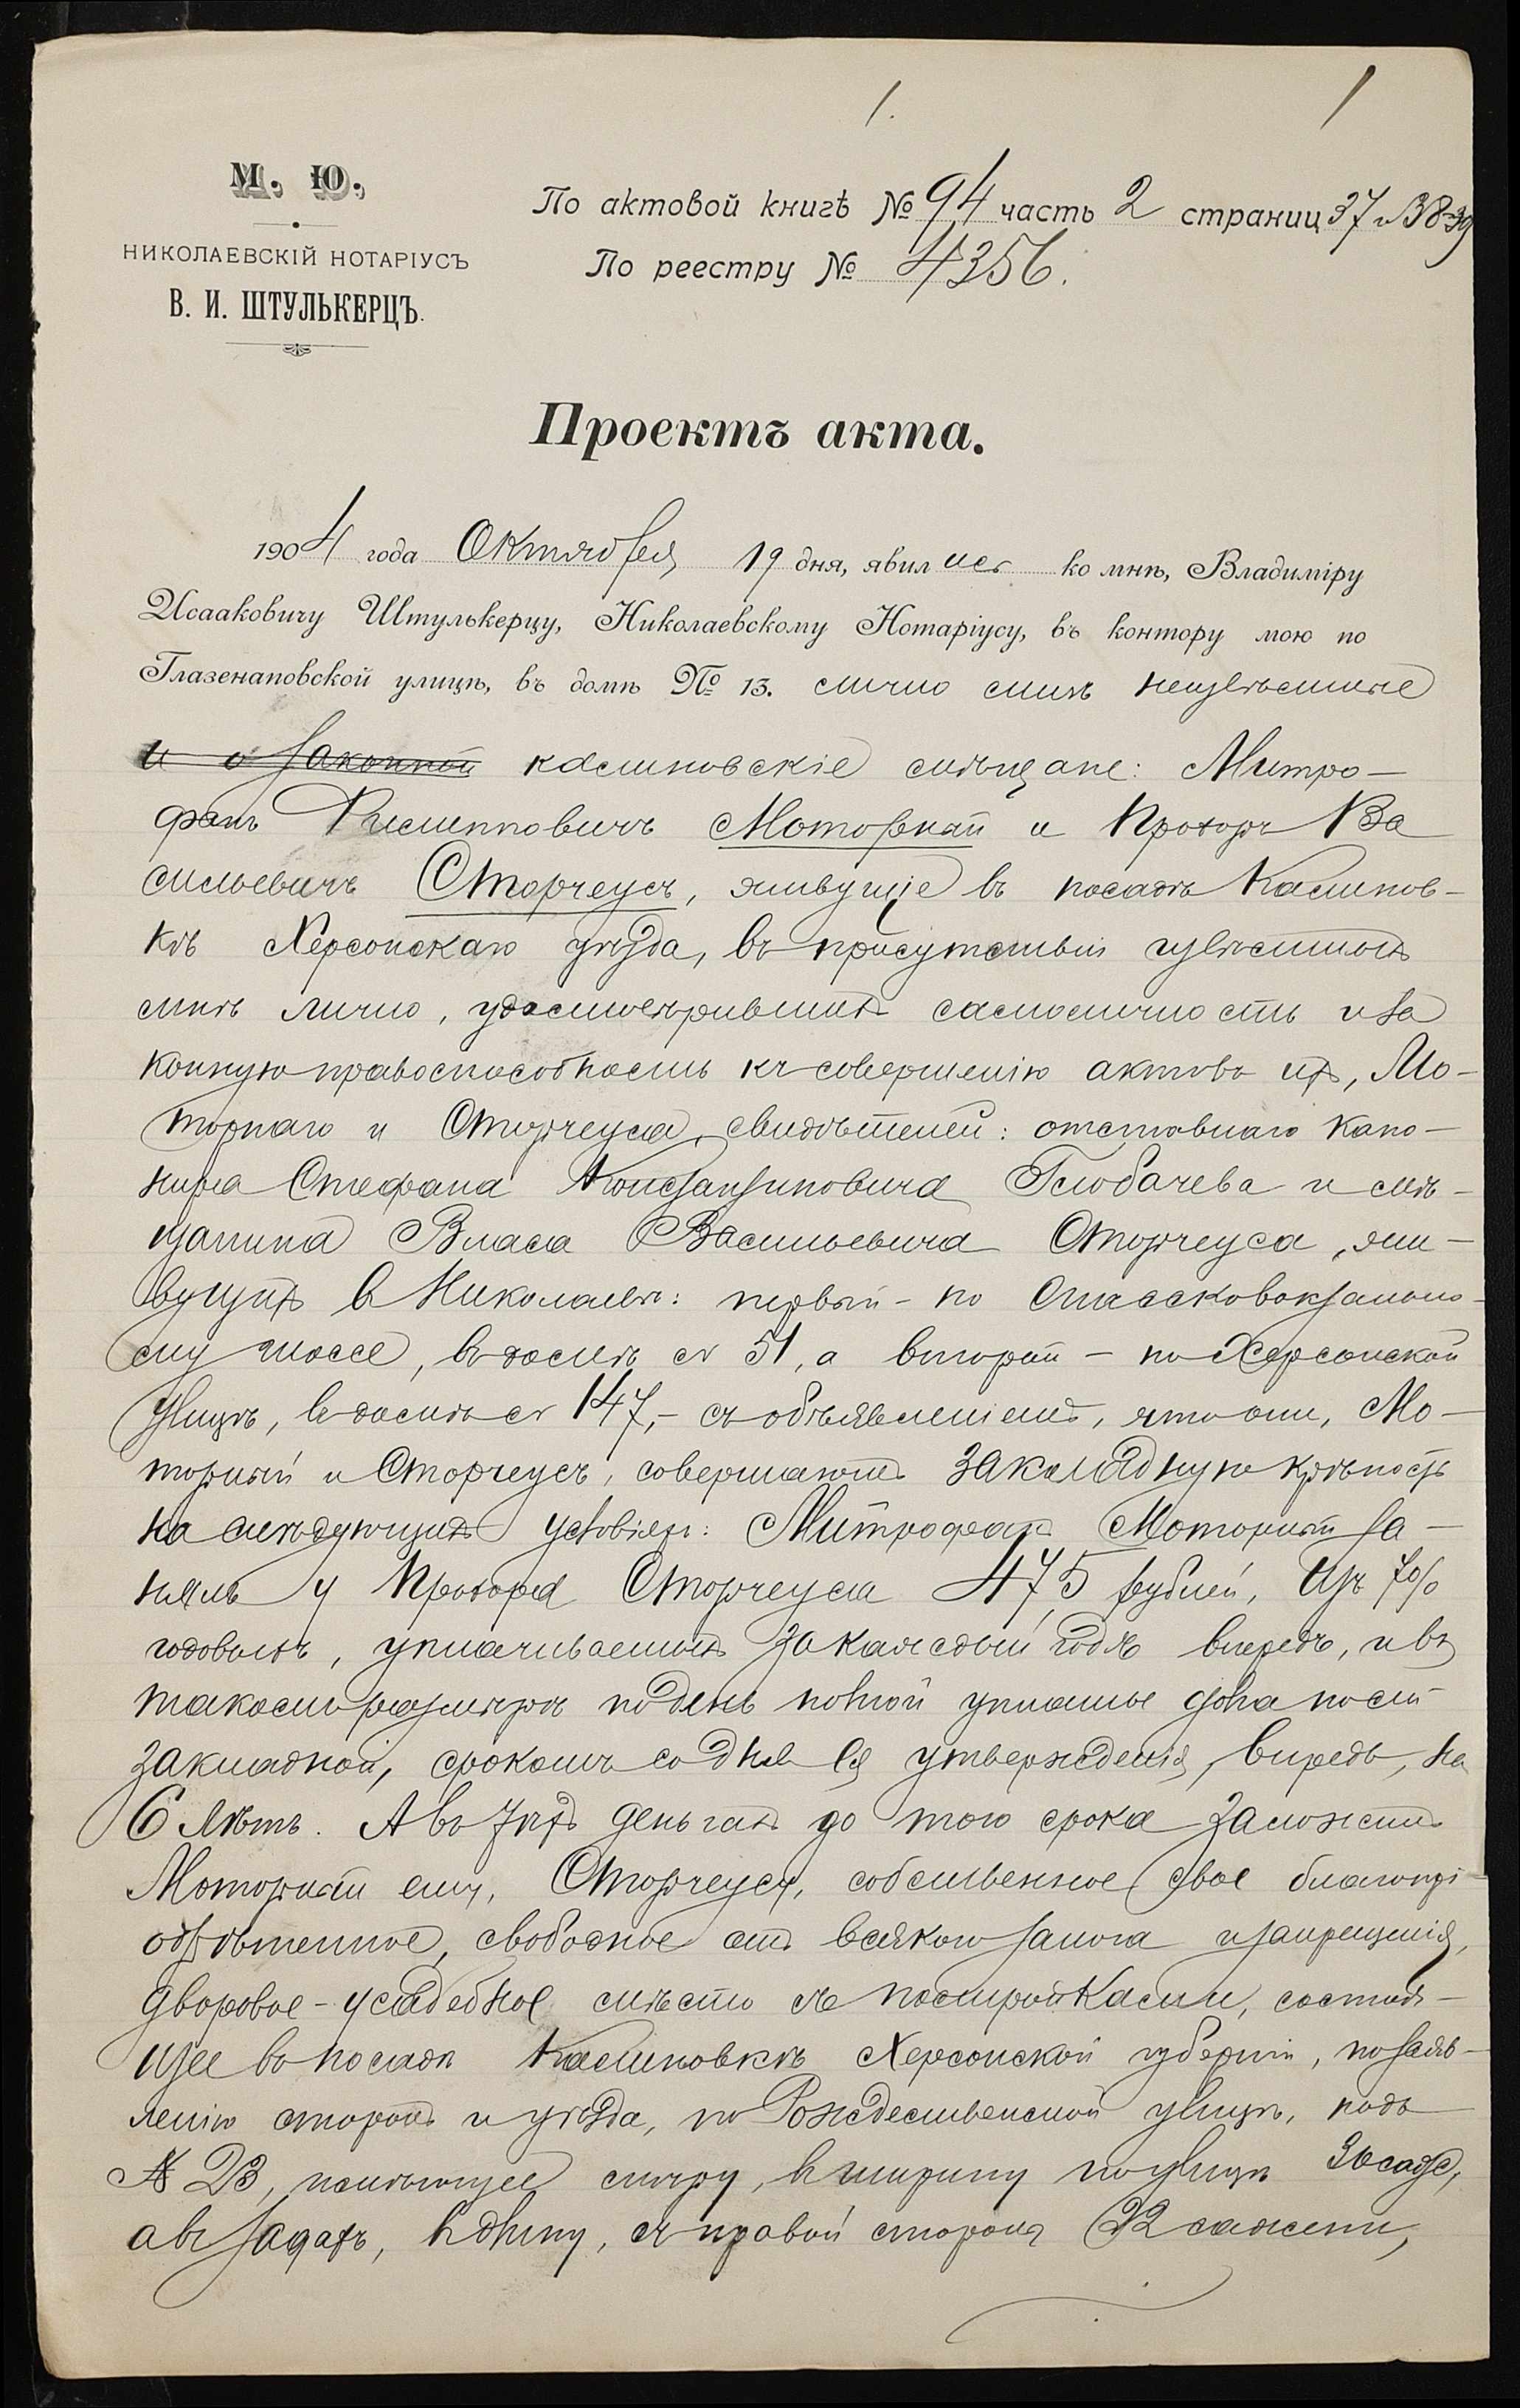 1.
1
М. Ю.
НИКОЛАЕВСКІЙ НОТАРІУСЪ
В. И. ШТУЛЬКЕРЦЪ.
По актовой книгѣ № 94 часть 2 страниц 37 и 38-39
По реестру № 4356.
Проектъ акта.
1904 года Октября 19 дня, явились ко мнѣ, Владиміру
Исааковичу Штулькерцу, Николаевскому Нотаріусу, въ контору мою по
Глазенаповской улицѣ, въ домѣ № 13. лично мнѣ неизвѣстные
и о законной калиновскіе мѣщане: Митро-
фанъ Филипповичъ Моторный и Прохоръ Ва
сильевичъ Сторчеусъ, живущіе въ посадѣ Калинов-
кѣ Херсонскаго уѣзда, въ присутствіи извѣстныхъ
мнѣ лично, удостовѣрившихъ самоличность и за
конную правоспособность къ совершенію актовъ ихъ, Мо-
торнаго и Сторчеуса, свидѣтелей: отставного кано-
нира Стефана Константиновича Глобачева и мѣ-
щанина Власа Васильевича Сторчеуса, жи-
вущихъ въ Николаевѣ: первый - по Спассковокзально-
му шоссе, въ домѣ № 51, а второй - по Херсонской
улицѣ, въ домѣ № 147, - съ объявленіемъ, что они, Мо-
торный и Сторчеусъ, совершаютъ закладную крѣпость
на слѣдующихъ условіяхъ: Митрофанъ Моторный за-
нялъ у Прохора Сторчеуса 475 рублей, изъ 7%
годовыхъ, уплачиваемыхъ за каждый годъ впередъ, и въ
такомъ размѣрѣ по день полной уплаты долга по сей
закладной, срокомъ со дня ея утвержденія, впредь, на
6 лѣтъ. А въ тѣхъ деньгахъ до того срока заложилъ
Моторный ему, Сторчеусу, собственное свое благопрі-
обрѣтенное, свободное отъ всякаго залога и запрещенія,
дворовое-усадебное мѣсто съ постройками, состоя-
щее въ посадѣ Калиновкѣ Херсонской губерніи, по заяв-
ленію сторонъ и уѣзда, по Рождественской улицѣ, подъ
№ 23, имѣющее мѣру, въ ширину по улицѣ
а въ задахъ, въ длину, съ правой стороны 32 сажени,